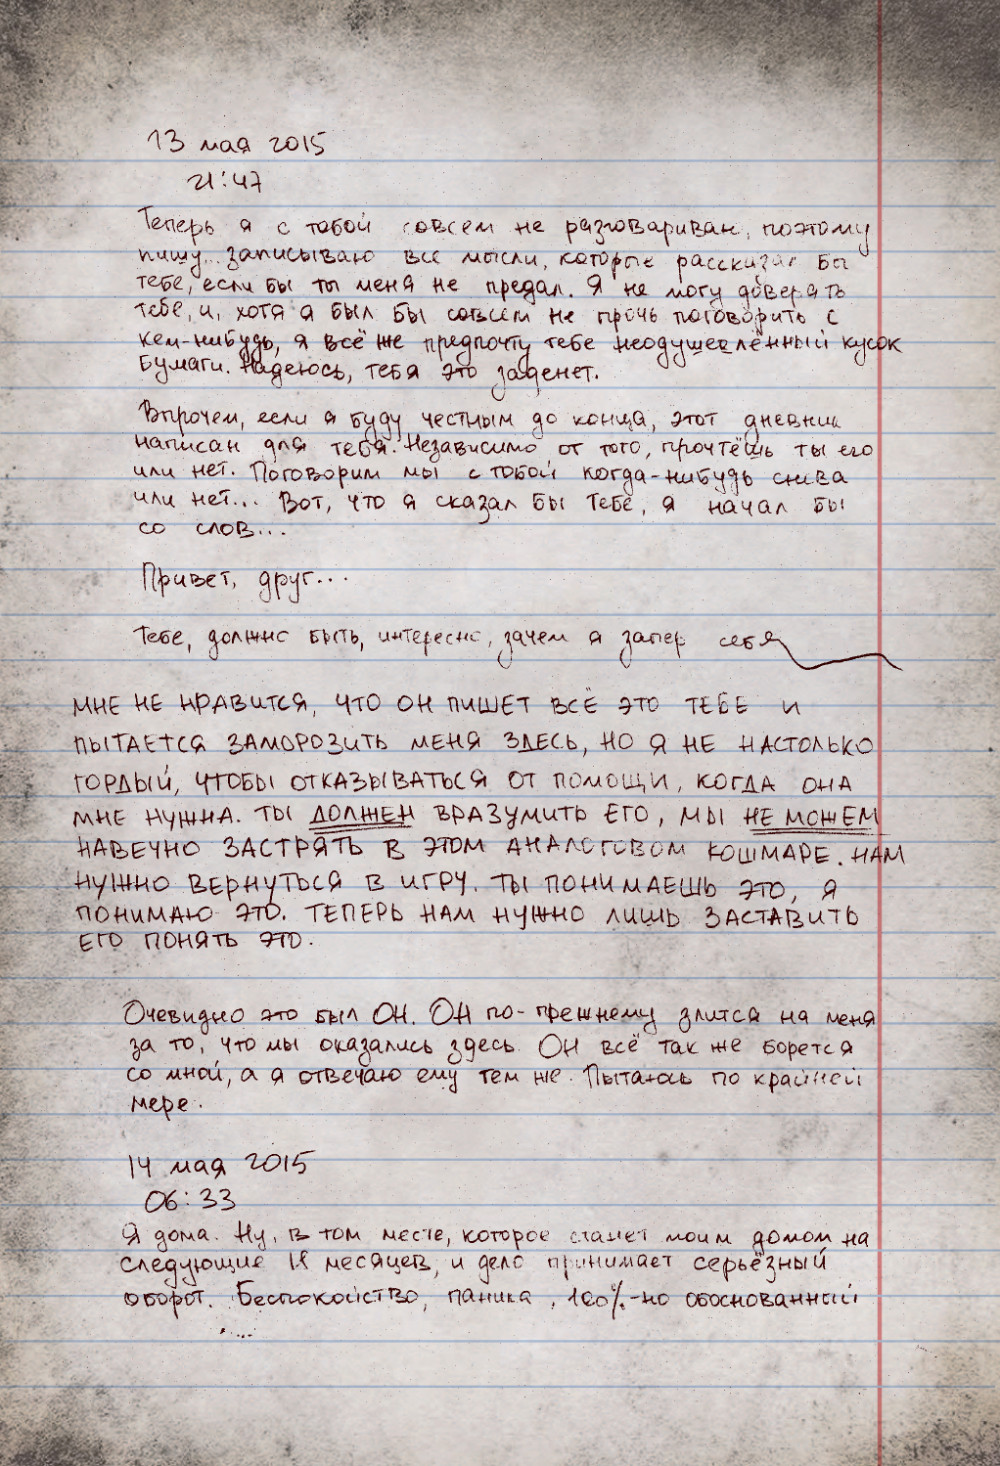 13 мая 2015
21:47
Теперь я с тобой совсем не разговариваю, поэтому
пишу... записываю все мысли, которые рассказал бы
тебе, если бы ты меня не предал. Я не могу доверять
тебе, и, хотя я был бы совсем не прочь поговорить с
кем-нибудь, я всё же предпочту тебе неодушевлённый кусок
бумаги. Надеюсь, тебя это заденет.
Впрочем, если я буду честным до конца, этот дневник
написан для тебя. Независимо от того, прочтёшь ты его
или нет. Поговорим мы с тобой когда-нибудь снова
или нет... Вот, что я сказал бы тебе, я начал бы
со слов...
Привет, друг...
Тебе, должно быть, интересно, зачем я запер себя
МНЕ НЕ НРАВИТСЯ, ЧТО ОН ПИШЕТ ВСЁ ЭТО ТЕБЕ И
ПЫТАЕТСЯ ЗАМОРОЗИТЬ МЕНЯ ЗДЕСЬ, НО Я НЕ НАСТОЛЬКО
ГОРДЫЙ, ЧТОБЫ ОТКАЗЫВАТЬСЯ ОТ ПОМОЩИ, КОГДА ОНА
МНЕ НУЖНА. ТЫ ДОЛЖЕН ВРАЗУМИТЬ ЕГО, МЫ НЕ МОЖЕМ
НАВЕЧНО ЗАСТРЯТЬ В ЭТОМ АНАЛОГОВОМ КОШМАРЕ. НАМ
НУЖНО ВЕРНУТЬСЯ В ИГРУ. ТЫ ПОНИМАЕШЬ ЭТО, Я
ПОНИМАЮ ЭТО. ТЕПЕРЬ НАМ НУЖНО ЛИШЬ ЗАСТАВИТЬ
ЕГО ПОНЯТЬ ЭТО.
Очевидно это был ОН. ОН по-прежнему злится на меня
за то, что мы оказались здесь. ОН всё так же борется
со мной, а я отвечаю ему тем же. Пытаюсь по крайней
мере.
14 мая 2015
06:33
Я дома. Ну, в том месте, которое станет моим домом на
следующие 18 месяцев, и дело принимает серьёзный
оборот. Беспокойство, паника, 100%-но обоснованный